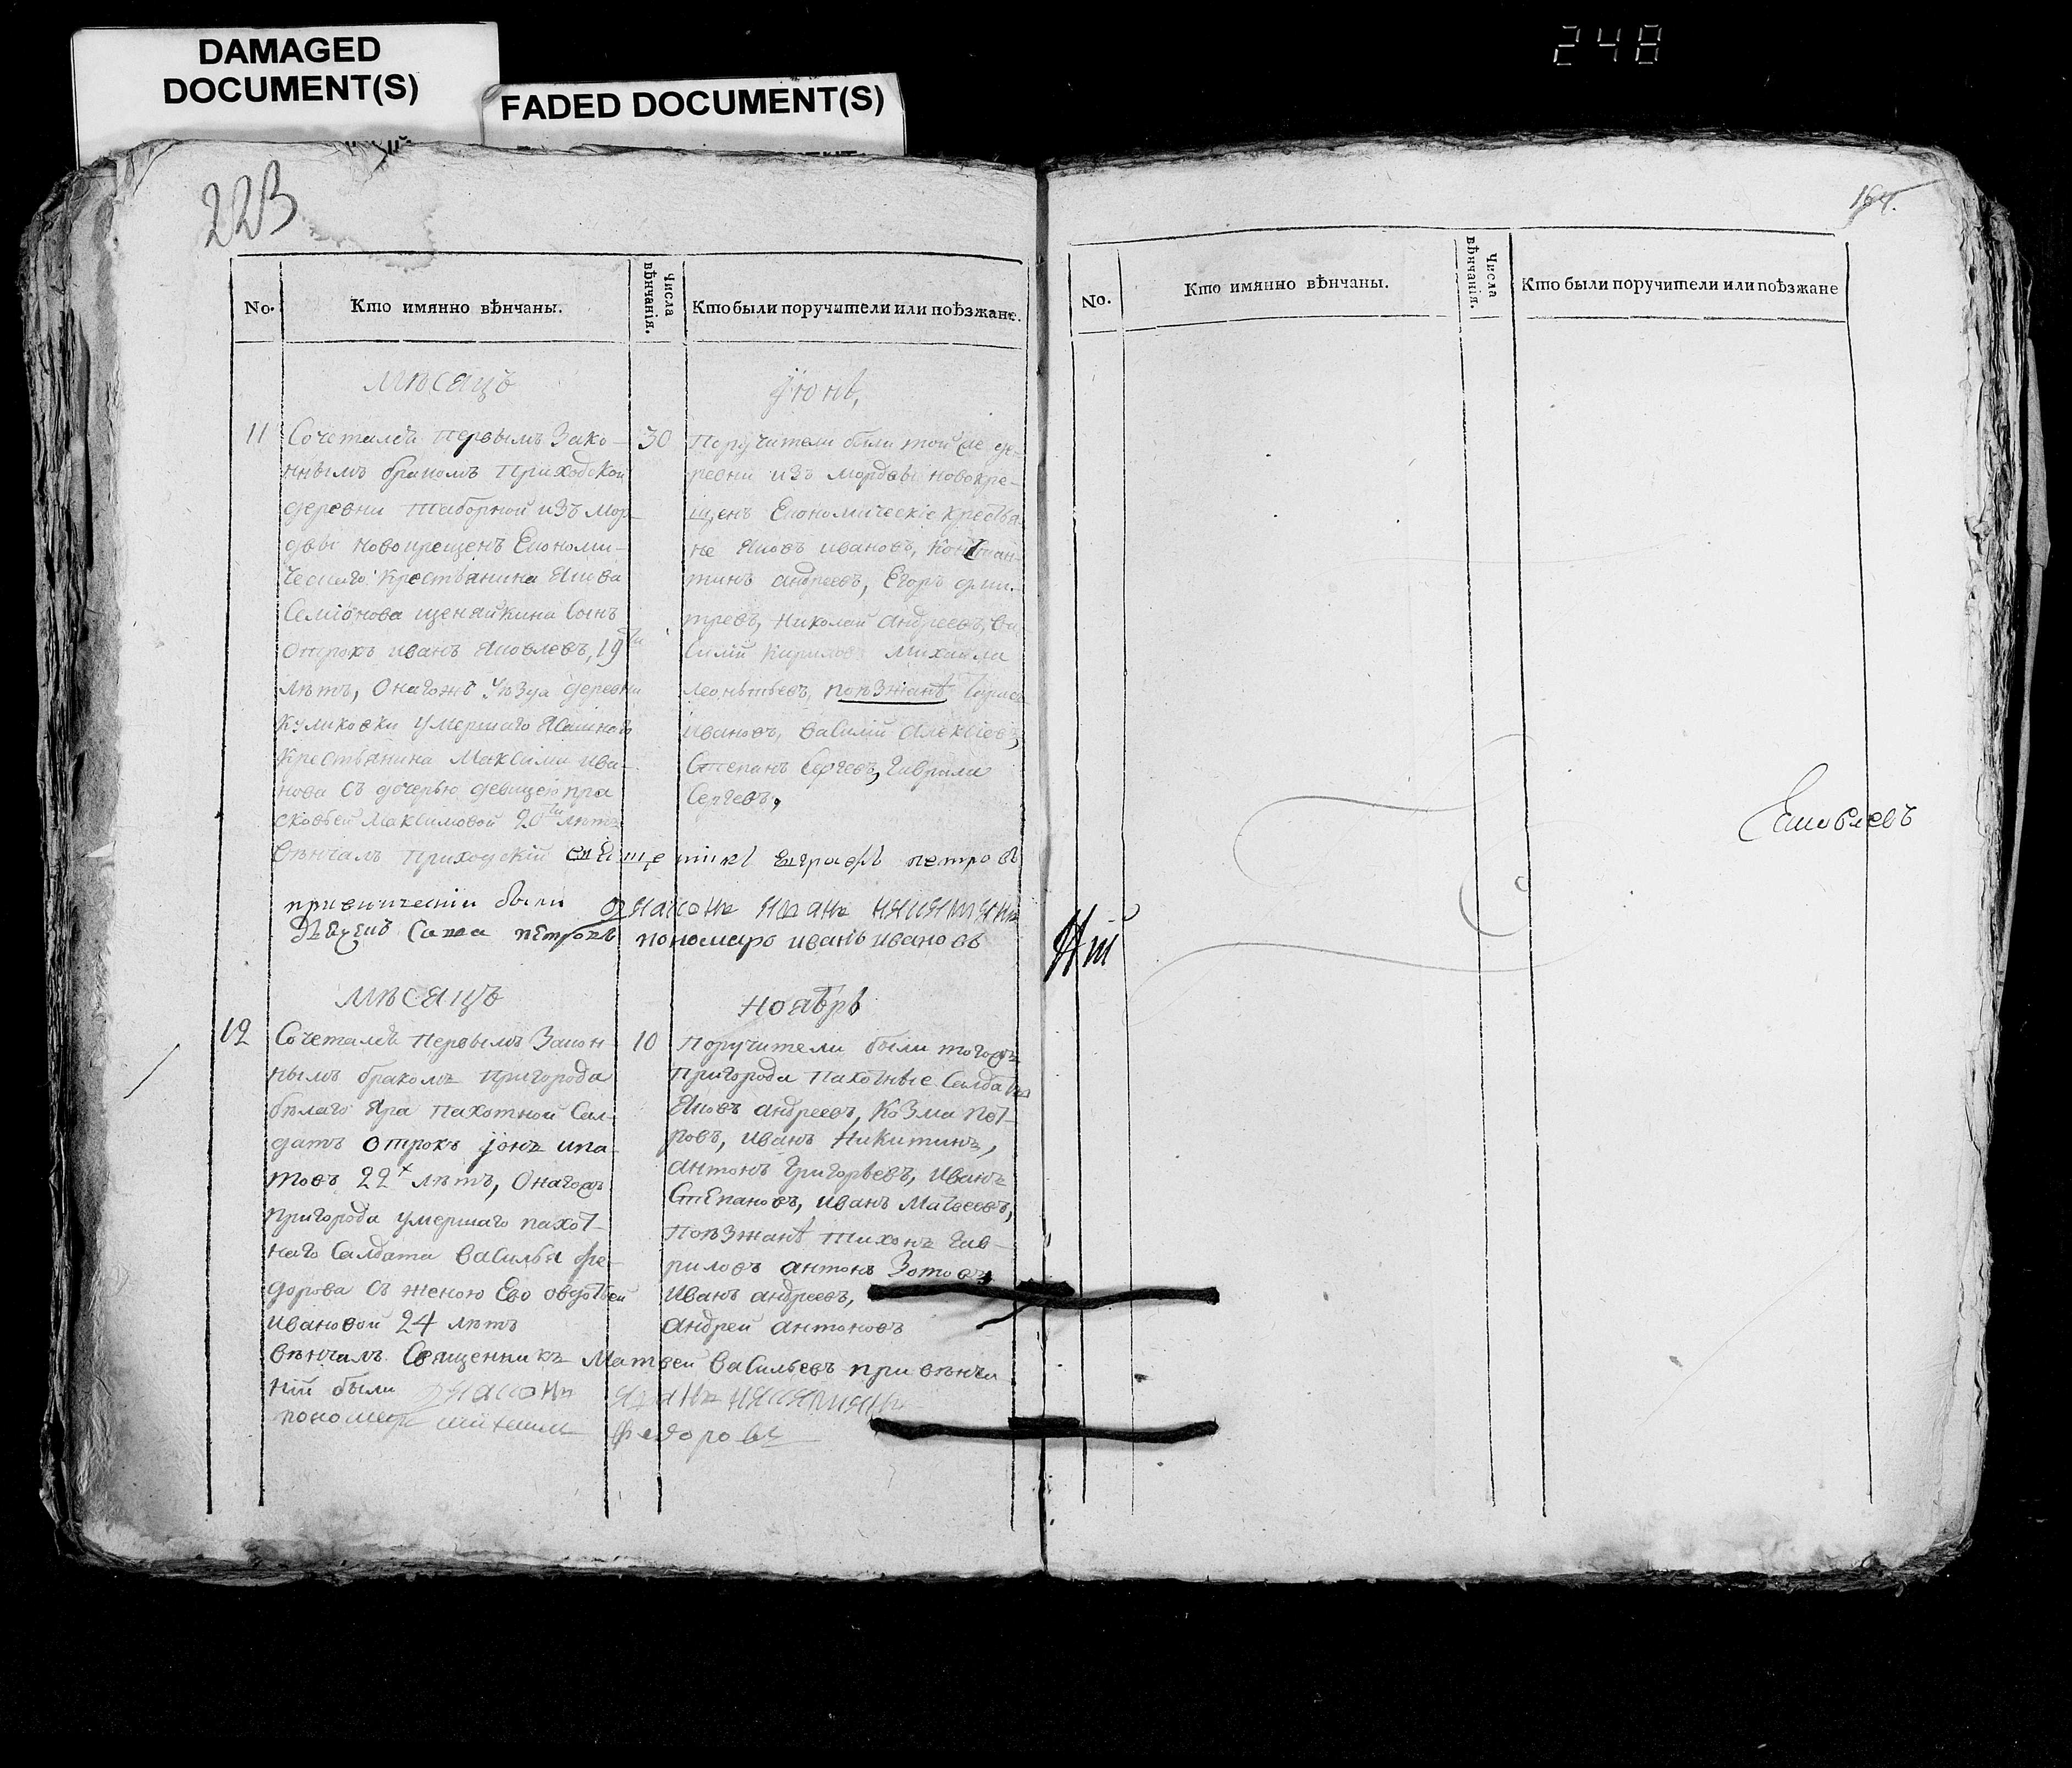 DAMAGED
DOCUMENT(S)
FADED DOCUMENT(S)
248
223
No.
Кто имянно вѣнчаны.
Числа
вѣнчанія.
Кто были поручители или поѣзжане.
мѣсяцъ
Їюнь,
11
Сочетался первымъ зако-
ннымъ бракомъ приходской
деревни таборной изъ мор-
двы новокрещенъ Економи-
ческаго крестьянина Якова
Семіонова сынъ
отрокъ иванъ Яковлевъ, 19ти
лѣтъ, онагожъ уѣзда деревни
Куликовки умершаго Ясашнаго
крестьянина Максима Ива-
нова съ дочерью девицею пра
сковьей Максимовой 20ти лѣтъ
30
Поручители были той же де-
ревни изъ мордвы новокре-
щенъ Економическіе крестья-
не Яковъ ивановъ, Констан-
тинъ андреевъ, Егоръ дми-
тревъ, Николай Андреевъ, Ва
силій Кириловъ Михайла
леонтьевъ, поѣзжанѣ
ивановъ, василій Алексіевъ,
Степанъ Сергеевъ, Гаврила
Сергеевъ,
Вѣнчалъ приходскій священникъ Евграфъ петровъ
при венчаніи были дьяконъ иванъ
дьячекъ Савва петровъ пономарь иванъ ивановъ
мѣсяцъ
ноябрь
12
Сочетался первымъ закон
нымъ бракомъ пригорода
бѣлаго Яра пахотной сал-
датъ отрокъ іонъ ипа-
товъ 22х лѣтъ, онагожъ
пригорода умершаго пахот-
наго салдата василья фе-
дорова съ женою Ево овдотьей
ивановой 24 лѣтъ
10
Поручители были тогожъ
пригорода пахотные салдаты
Яковъ андреевъ, Козма пет-
ровъ, иванъ Никитинъ,
антонъ Григорьевъ, иванъ
Степановъ, иванъ Матвеевъ,
поѣзжанѣ Тихонъ Гав-
риловъ антонъ Зотовъ
иванъ андреевъ,
андрей антоновъ
вѣнчалъ Священникъ Матвей Васильевъ при вѣнча
ніи были дьяконъ иванъ
пономарь федоровъ
164.
No.
Кто имянно вѣнчаны.
Числа
вѣнчанія.
Кто были поручители или поѣзжане